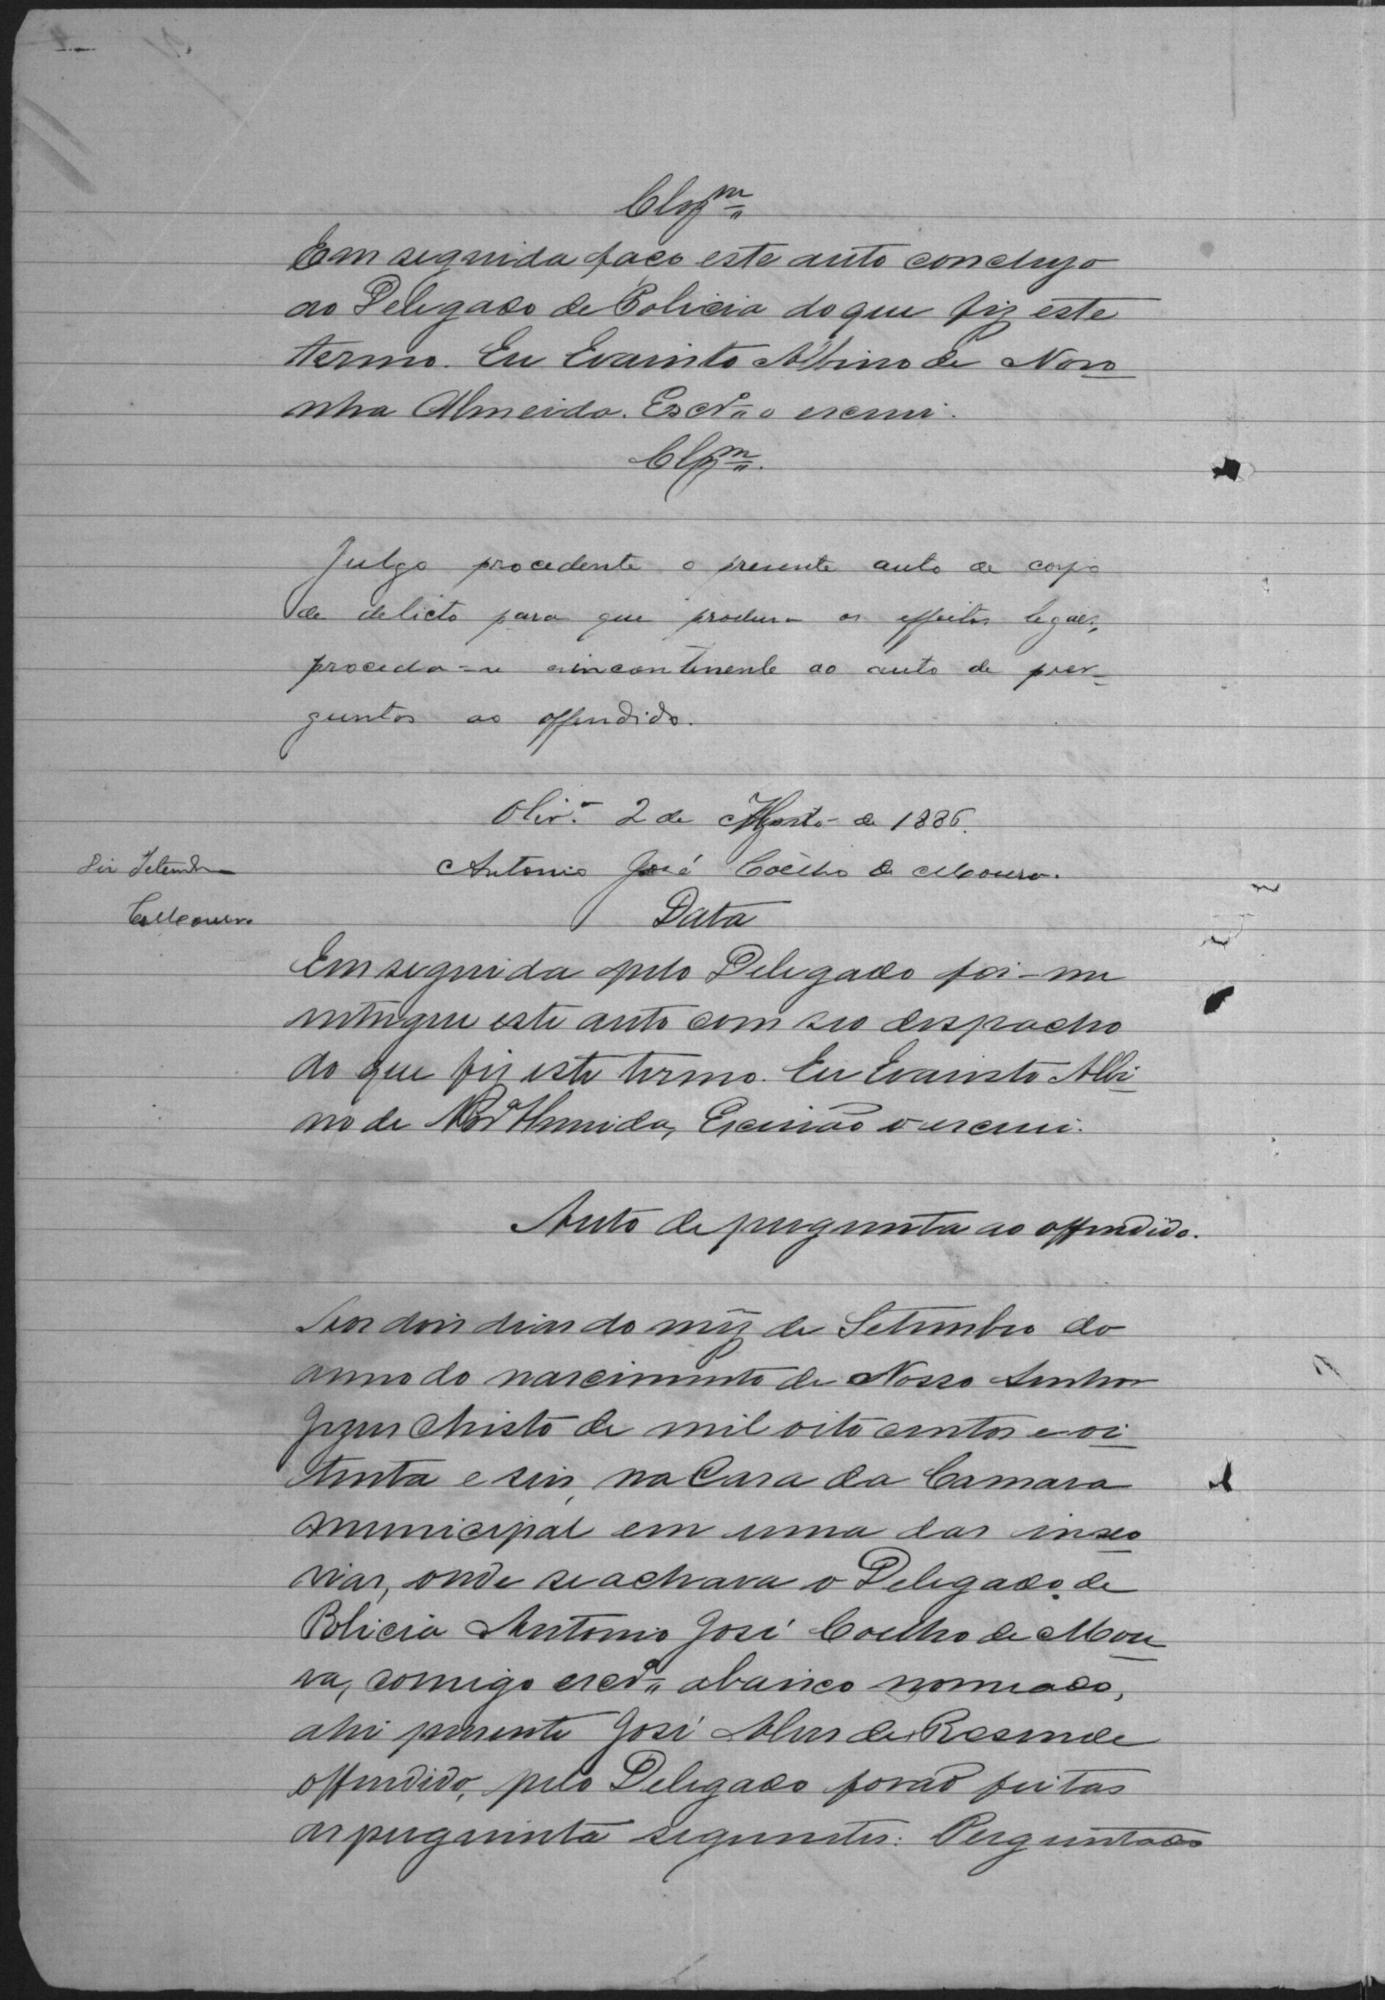 Clzm
Em seguida faço este auto concluzo
ao Delegado de Policia do que fiz este
termo. Eu Evaristo Albino de Noro
nha Almeida. Escrm o escrevi.
Clzm.
Julgo procedente o presente auto de corpo
de delicto para que produza os effeitos legaes,
proceda-se incontinente ao auto de per-
guntas ao offendido.
Olivra 2 de Agosto de 1886.
Antonio José Coêlho de Moura.
Digo Setembro
CMoura
Data
Em seguida pelo Delegado foi-me
entregue este auto com seo despacho
do que fiz este termo. Eu Evaristo Albi-
no de Norª Almeida, Escrivão o escrevi.
Auto de pergunta ao offendido.
Aos dois dias do mez de Setembro do
anno do nascimento de Nosso Senhor
Jezus Christo de mil oito centos e oi-
tenta e seis, na Casa da Camara
Municipal em uma das inxo
vias, onde se achava o Delegado de
Policia Antonio José Coelho de Mou-
ra, comigo escrm abaixo nomeado,
ahi prezente José Alves de Resende
offendido, pelo Delegado forão feitas
as pergunta seguentes: Perguntado